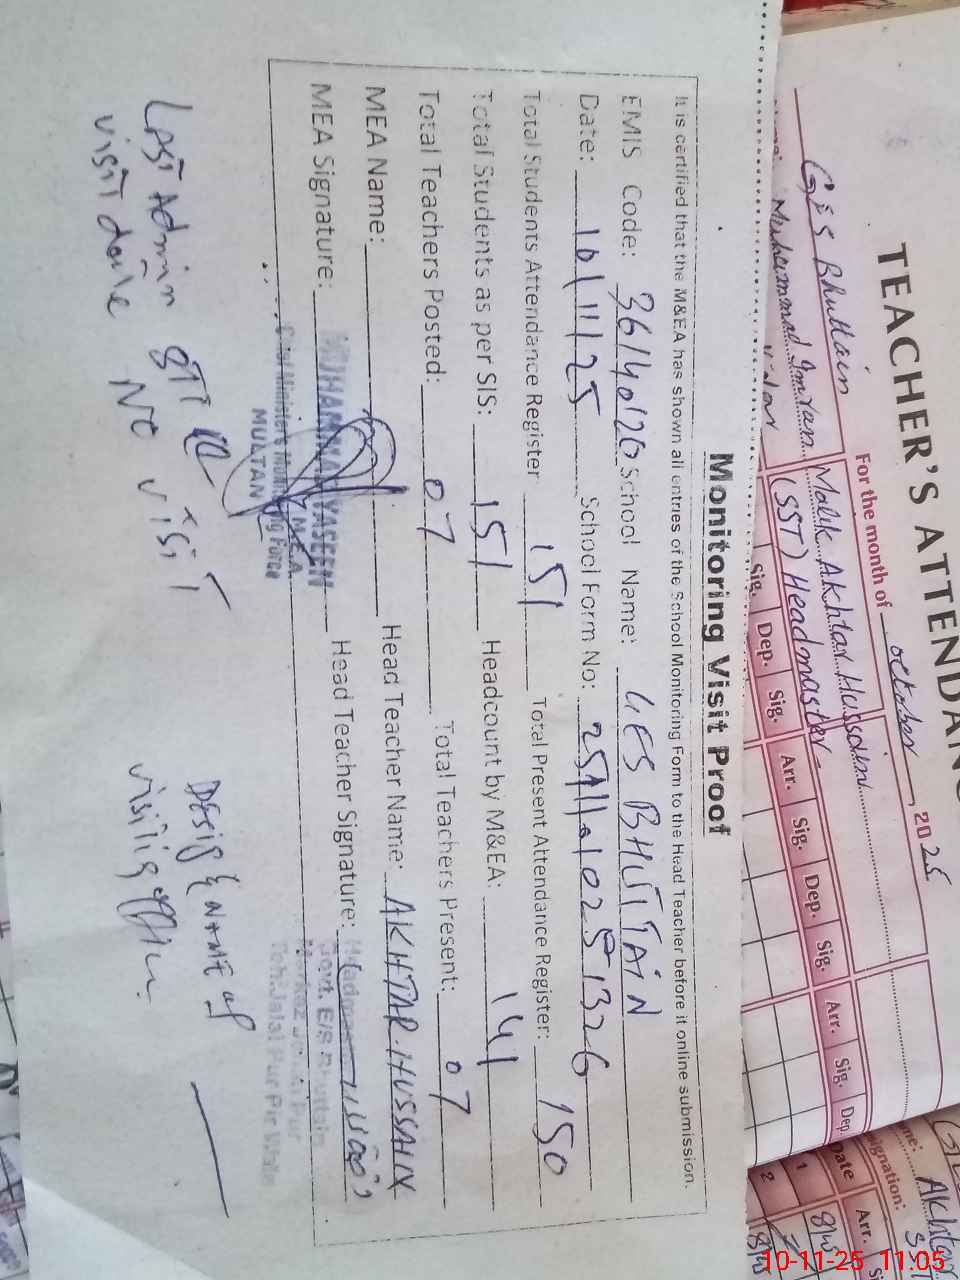 Monitoring Visit Proof
It is certified that the M&EA has shown all entries of the School Monitoring Form to the Head Teacher before it online submission.
EMIS Code: 36140120 School Name: GES BHUTTAIN
Date: 10/11/25 School Form No: 
Total Students Attendance Register 151 Total Present Attendance Register: 150
Total Students as per SIS: 151 Headcount by M&EA: 141
Total Teachers Posted: 07 Total Teachers Present: 07
MEA Name: Head Teacher Name: AKHTAR HUSSAIN
MEA Signature: Head Teacher Signature:
MUHAMMAD YASEEN
M.E.A
Chief Minister's Monitoring Force
MULTAN
Headmaster
Govt. E/S Bhuttain
Markaz
Teh: Jalal Pur Pir Wala
Last Admin
visit date No visit
Desig & NAME of
visiting officer
TEACHER'S ATTENDAN
For the month of october, 2025
GES Bhuttain
Muhammad Imran Malik Akhtar Hussain
(SST) Headmaster
Sig. Dep. Sig. Arr. Sig. Dep. Sig. Arr. Sig. Dep.
Akhtar
SST
Date Arr.
1
2
10-11-25 11:05